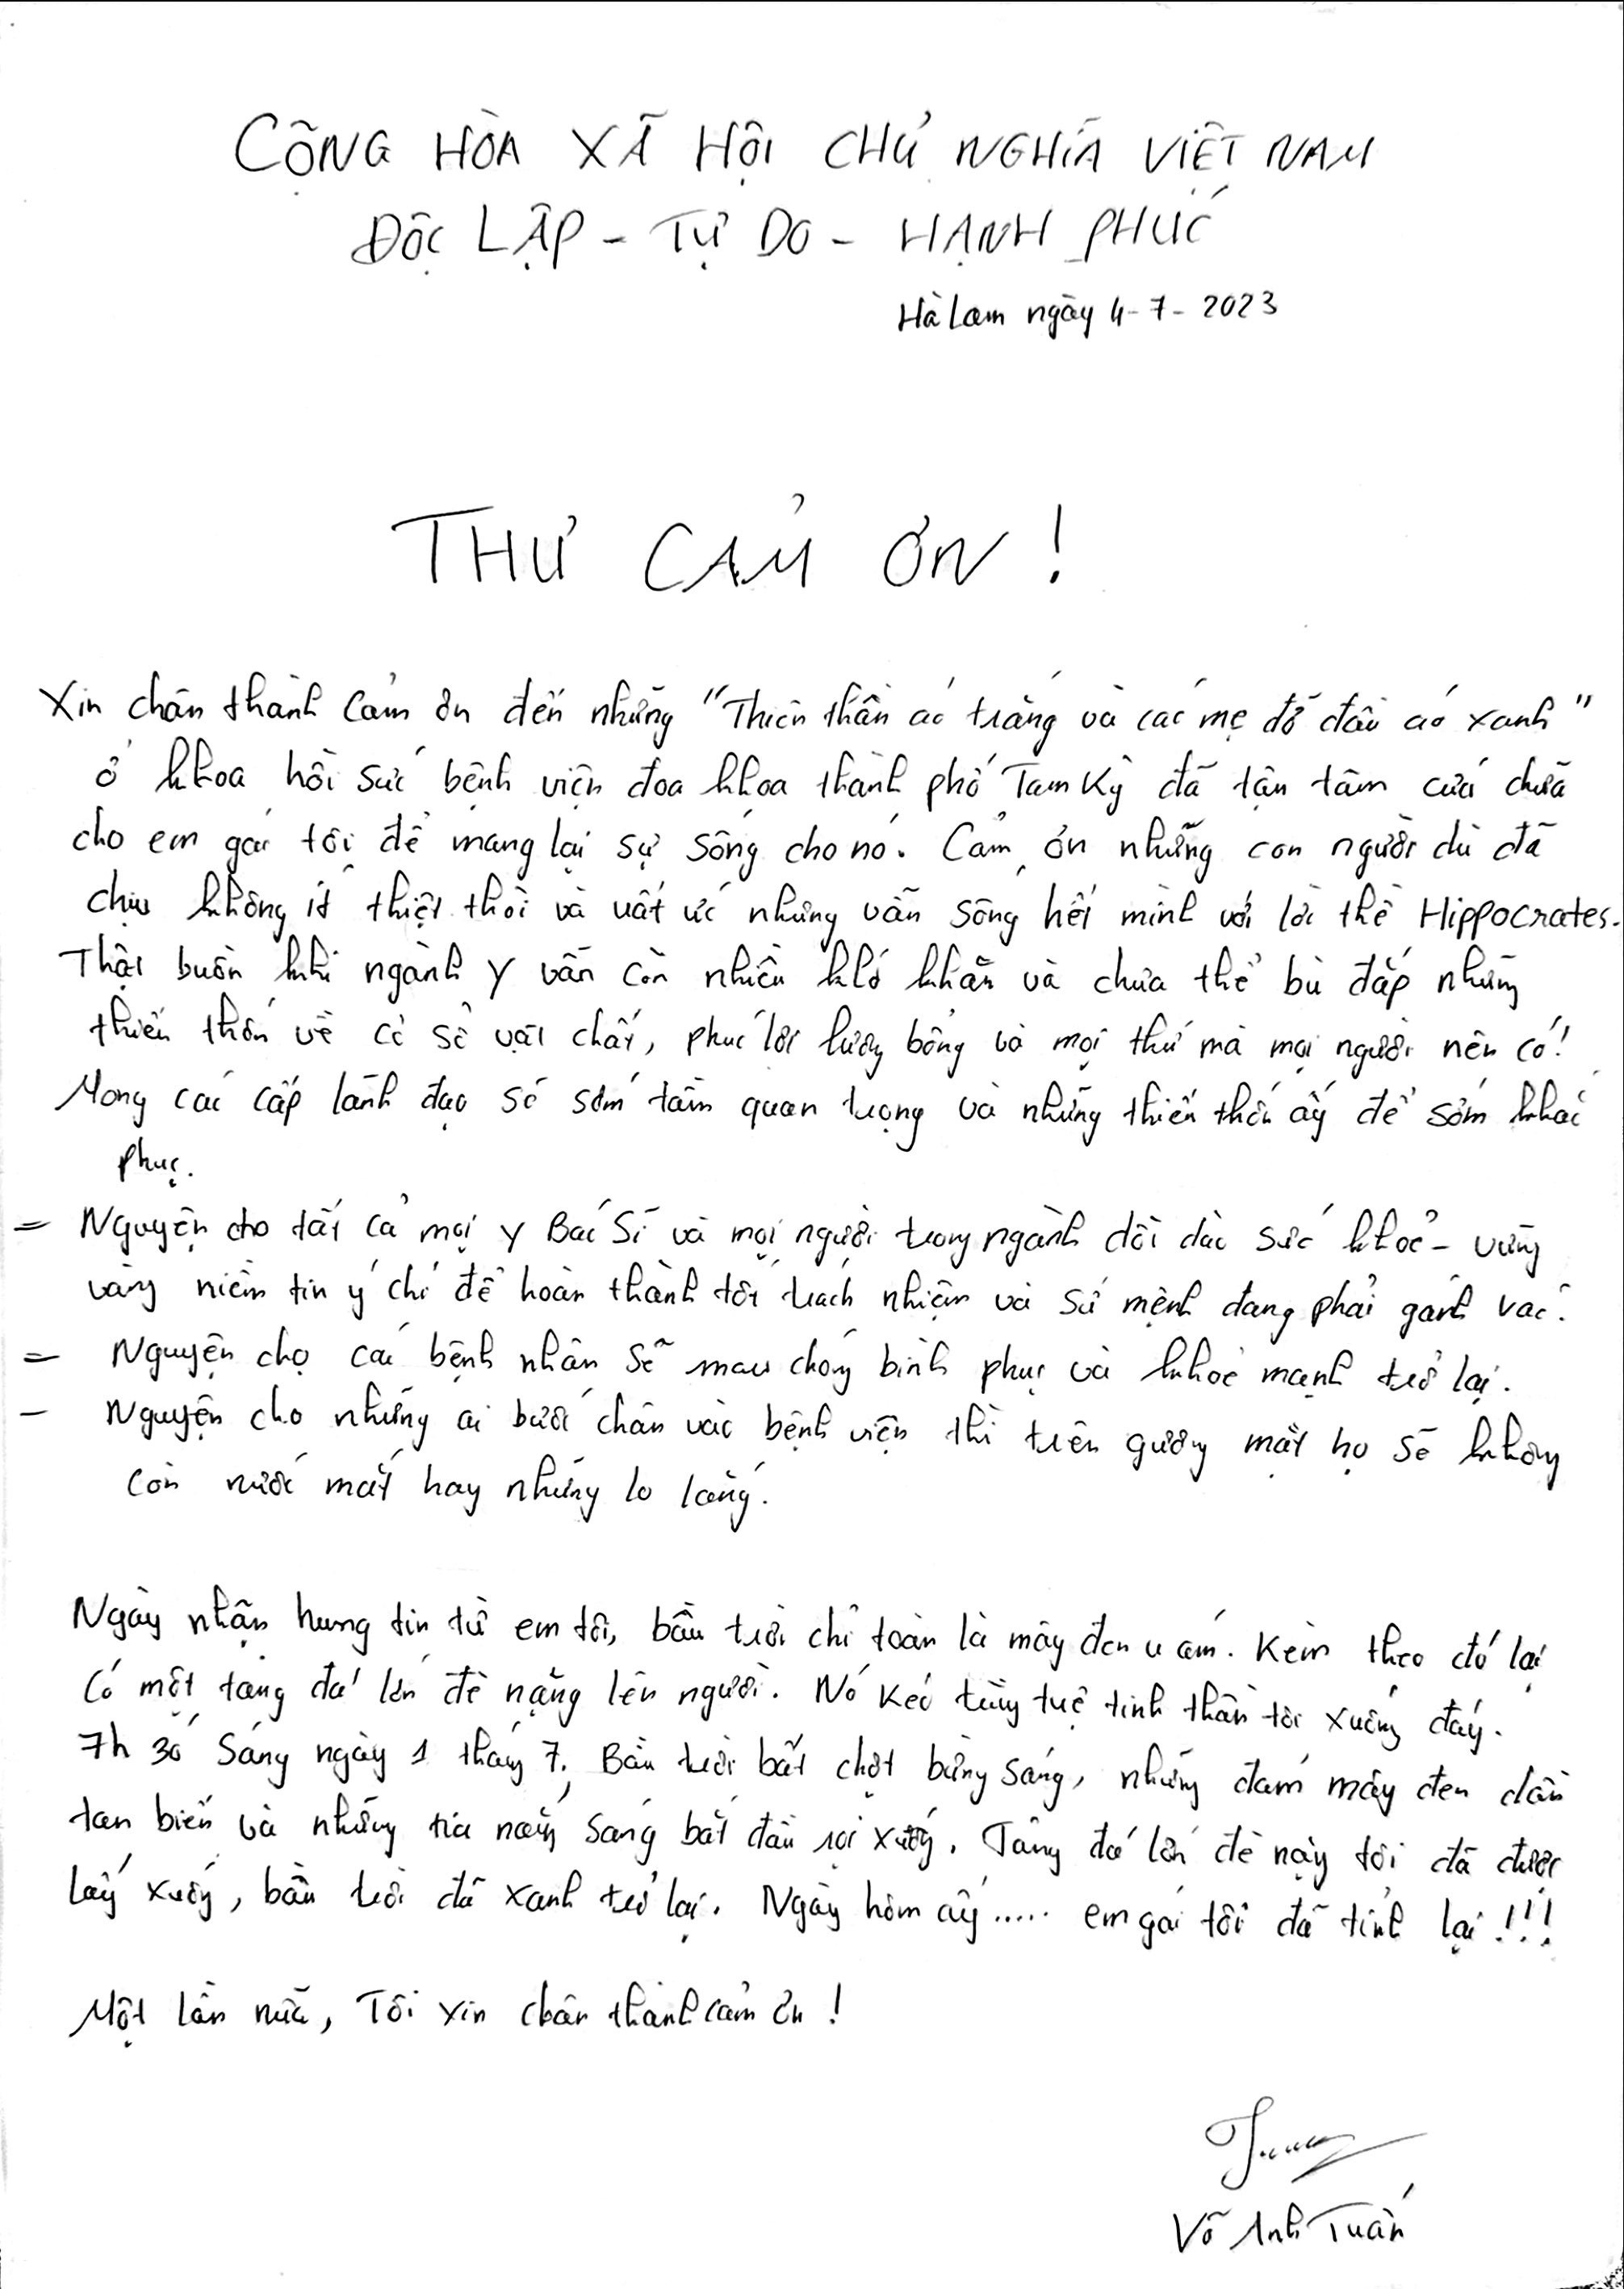 CỘNG HÒA XÃ HỘI CHỦ NGHĨA VIỆT NAM
ĐỘC LẬP - TỰ DO - HẠNH PHÚC
Hà Lam ngày 4-7-2023
THƯ CẢM ƠN !
Xin chân thành cảm ơn đến những "Thiên thần áo trắng và các mẹ đỡ đầu áo xanh"
ở khoa hồi sức bệnh viện đoa khoa thành phố Tam Kỳ đã tận tâm cứu chữa
cho em gái tôi để mang lại sự sống cho nó. Cảm ơn những con người dù đã
chịu không ít thiệt thòi và uất ức nhưng vẫn sống hết mình với lời thề Hippocrates.
Thật buồn khi ngành Y vẫn còn nhiều khó khăn và chưa thể bù đắp những
thiếu thốn về cơ sở vật chất, phúc lợi lương bổng và mọi thứ mà mọi người nên có!
Mong các cấp lãnh đạo sẽ sớm tâm quan trọng và những thiếu thốn ấy để sớm khắc
phục.
= Nguyện cho tất cả mọi Y Bác Sĩ và mọi người trong ngành dồi dào sức khoẻ - vững
vàng niềm tin ý chí để hoàn thành tốt trách nhiệm và sứ mệnh đang phải gánh vác.
= Nguyện cho các bệnh nhân sẽ mau chóng bình phục và khoẻ mạnh trở lại.
- Nguyện cho những ai bước chân vào bệnh viện thì trên gương mặt họ sẽ không
còn nước mắt hay những lo lắng.
Ngày nhận hung tin từ em tôi, bầu trời chỉ toàn là mây đen u ám. Kèm theo đó lại
Có một tảng đá lớn đè nặng lên người. Nó kéo từng tuệ tinh thần tôi xuống đáy.
7h 30 Sáng ngày 1 tháng 7. Bầu trời bất chợt bừng sáng, những đám mây đen dần
tan biến và những tia nắng sáng bắt đầu rọi xuống. Tảng đá lớn đè này tôi đã được
lấy xuống, bầu trời đã xanh trở lại. Ngày hôm ấy ..... em gái tôi đã tỉnh lại !!!
Một lần nữa, Tôi xin chân thành cảm ơn !
Võ Anh Tuấn